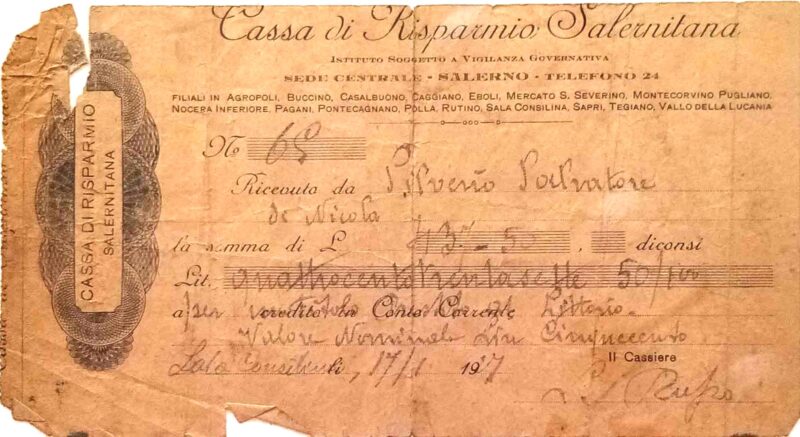 Cassa di Risparmio Salernitana
ISTITUTO SOGGETTO A VIGILANZA GOVERNATIVA
SEDE CENTRALE - SALERNO - TELEFONO 24
FILIALI IN AGROPOLI, BUCCINO, CASALBUONO, CAGGIANO, EBOLI, MERCATO S. SEVERINO, MONTECORVINO PUGLIANO,
NOCERA INFERIORE, PAGANI, PONTECAGNANO, POLLA, RUTINO, SALA CONSILINA, SAPRI, TEGIANO, VALLO DELLA LUCANIA
CASSA DI RISPARMIO
SALERNITANA
No
Ricevuto da Salvatore
di Nicola
la somma di L 437 - 50, diconsi
Lit. quattrocentotrentasette 50/100
a per credito in Conto Corrente Littorio
Valore Nominale Lire Cinquecento
Sala Consilina li, 17/1 1927
Il Cassiere
Russo